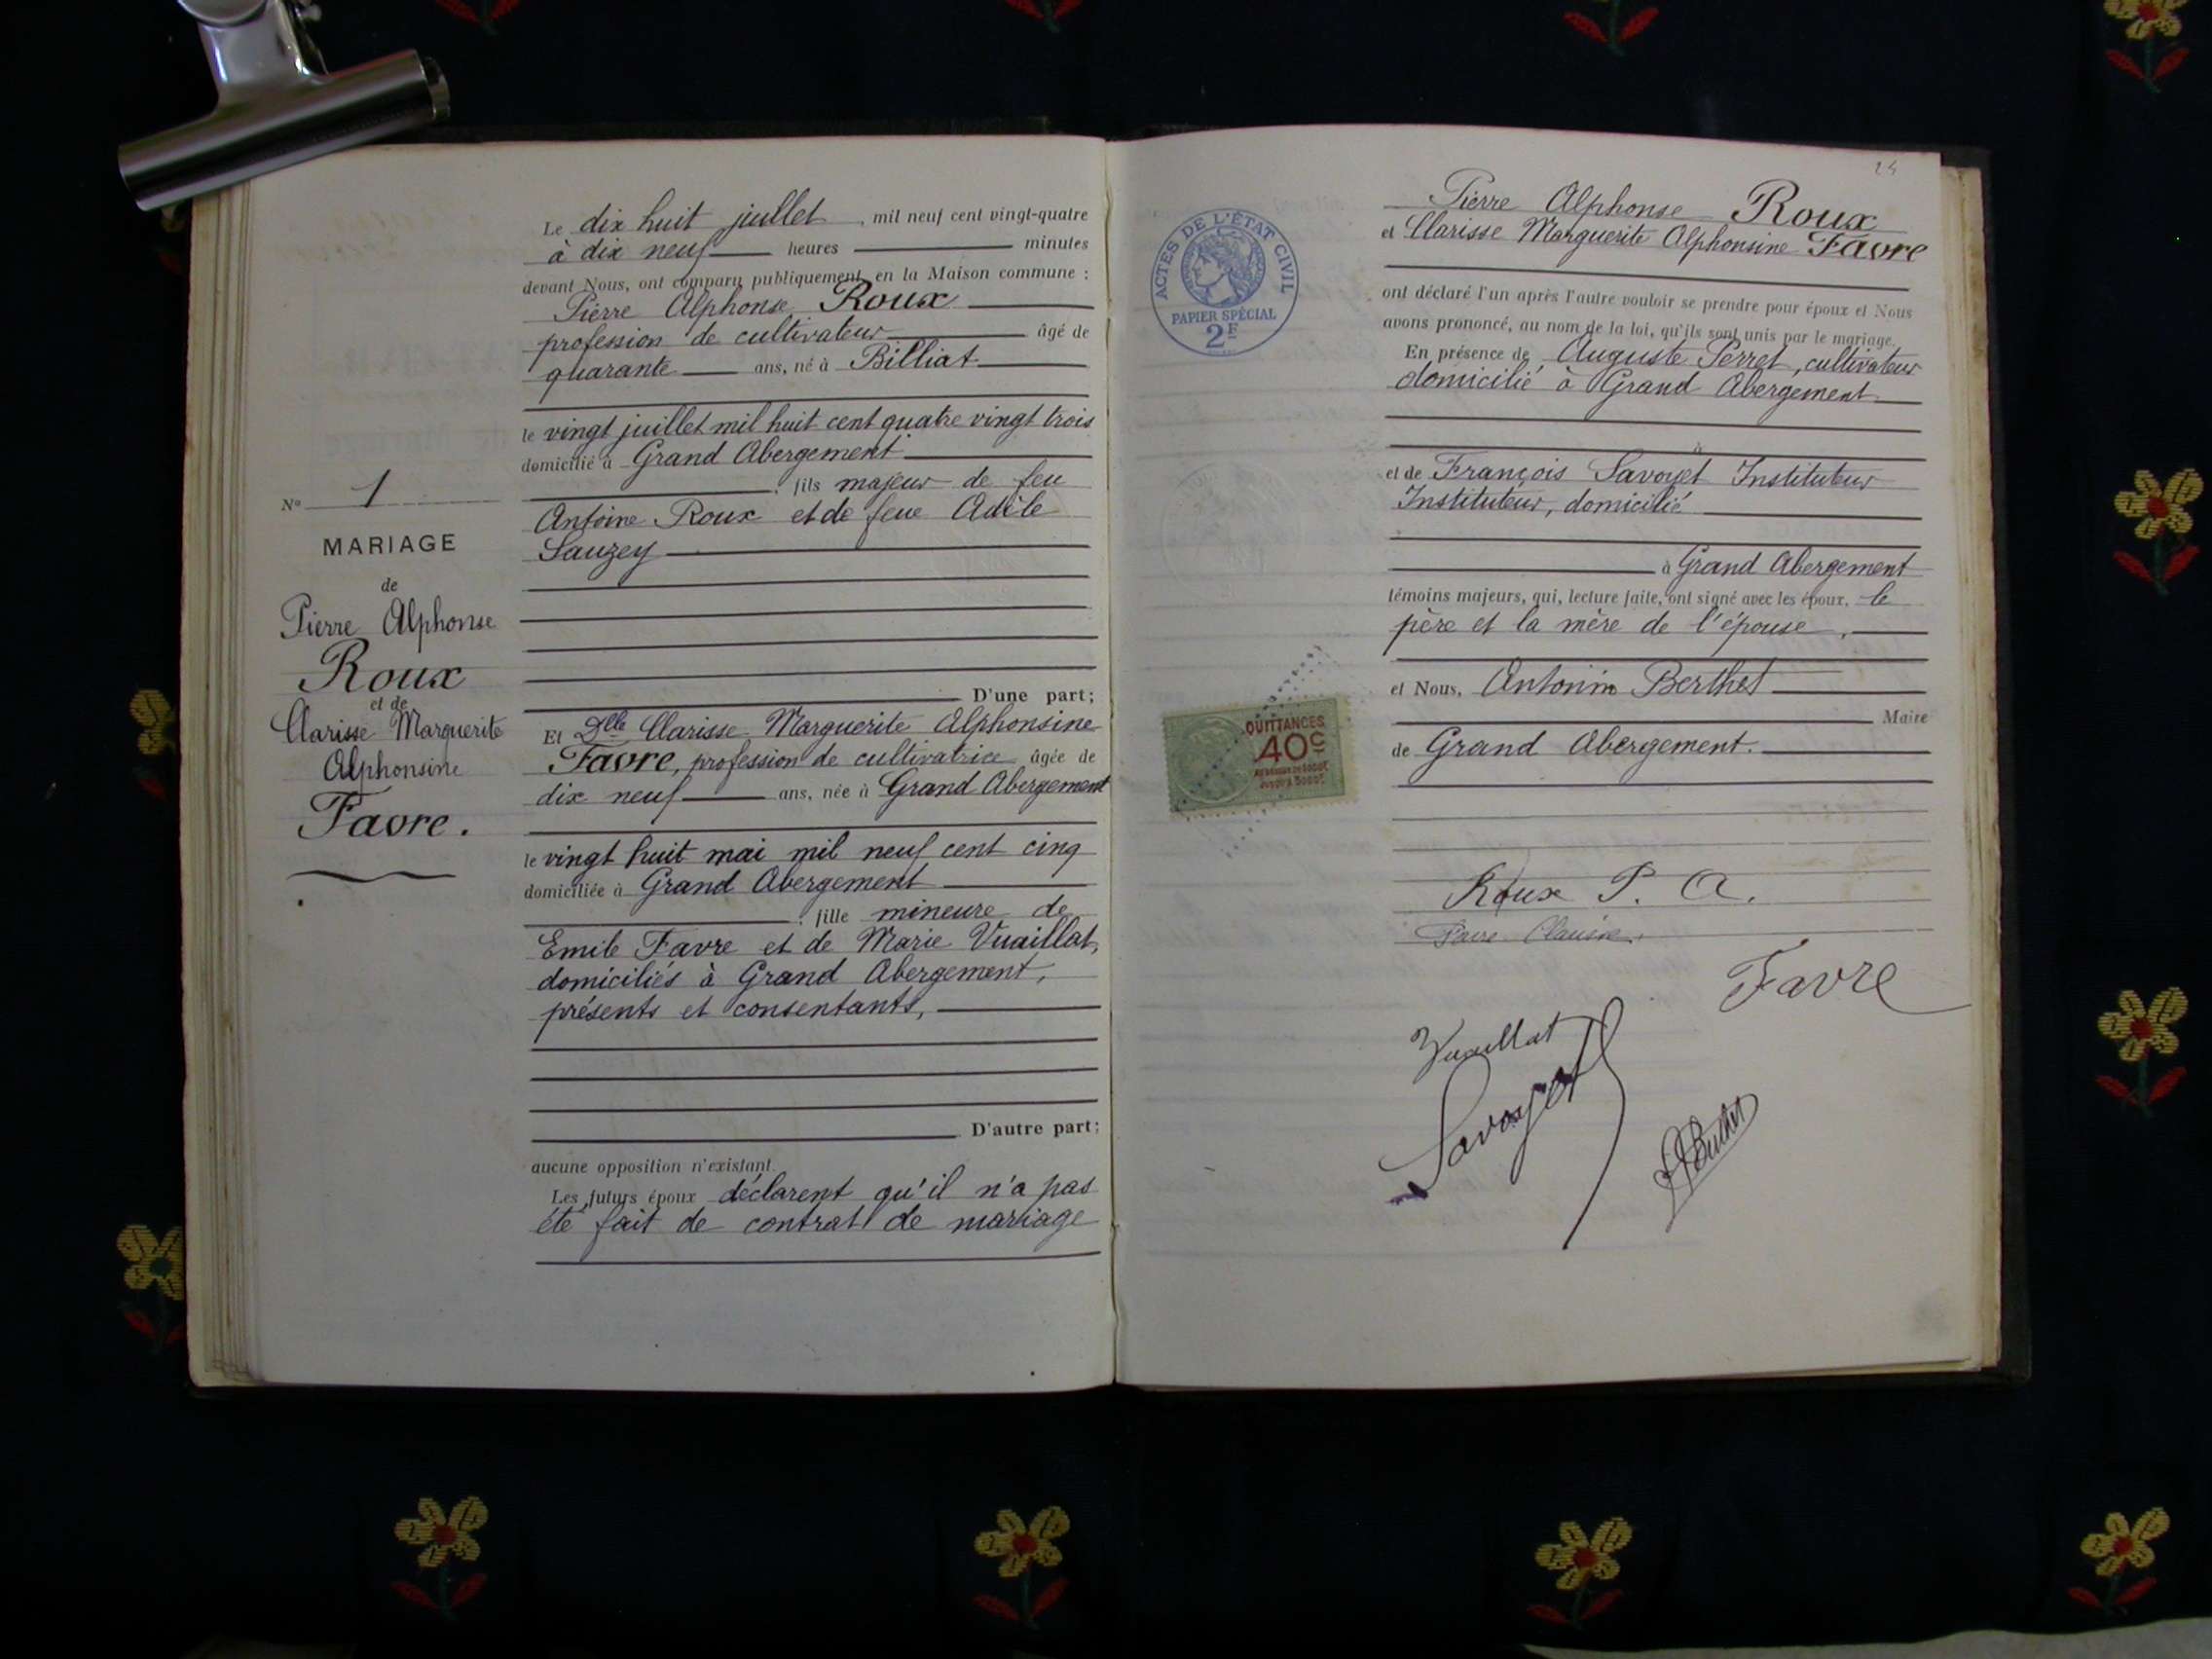 Le dix huit juillet, mil neuf cent vingt-quatre
à dix neuf heures minutes
devant Nous, ont comparu publiquement en la Maison commune :
Pierre Alphonse Roux
profession de cultivateur âgé de
quarante ans, né à Billiat
le vingt juillet mil huit cent quatre vingt trois
domicilié à Grand Abergement
; fils majeur de feu
Antoine Roux et de feue Adèle
Sauzey
D'une part;
Et Dlle Clarisse Marguerite Alphonsine
Favre, profession de cultivatrice âgée de
dix neuf ans, née à Grand Abergement
le vingt huit mai mil neuf cent cinq
domiciliée à Grand Abergement
; fille mineure de
Emile Favre et de Marie Vuaillat,
domiciliés à Grand Abergement,
présents et consentants,
D'autre part;
aucune opposition n'existant.
Les futurs époux déclarent qu'il n'a pas
été fait de contrat de mariage
No 1
MARIAGE
de
Pierre Alphonse
Roux
et de
Clarisse Marguerite
Alphonsine
Favre.
24
Pierre Alphonse Roux
et Clarisse Marguerite Alphonsine Favre
ont déclaré l'un après l'autre vouloir se prendre pour époux et Nous
avons prononcé, au nom de la loi, qu'ils sont unis par le mariage.
En présence de Auguste Perret, cultivateur
domicilié à Grand Abergement
à
et de François Savoyet Instituteur
Instituteur, domicilié
à Grand Abergement
témoins majeurs, qui, lecture faite, ont signé avec les époux, le
père et la mère de l'épouse,
et Nous, Antonin Berthet
Maire
de Grand Abergement.
Roux P. A.
Favre Clarisse.
Favre
Vuaillat
Savoyet
Berthet
ACTES DE L'ÉTAT CIVIL
PAPIER SPÉCIAL
2F
QUITTANCES
40c